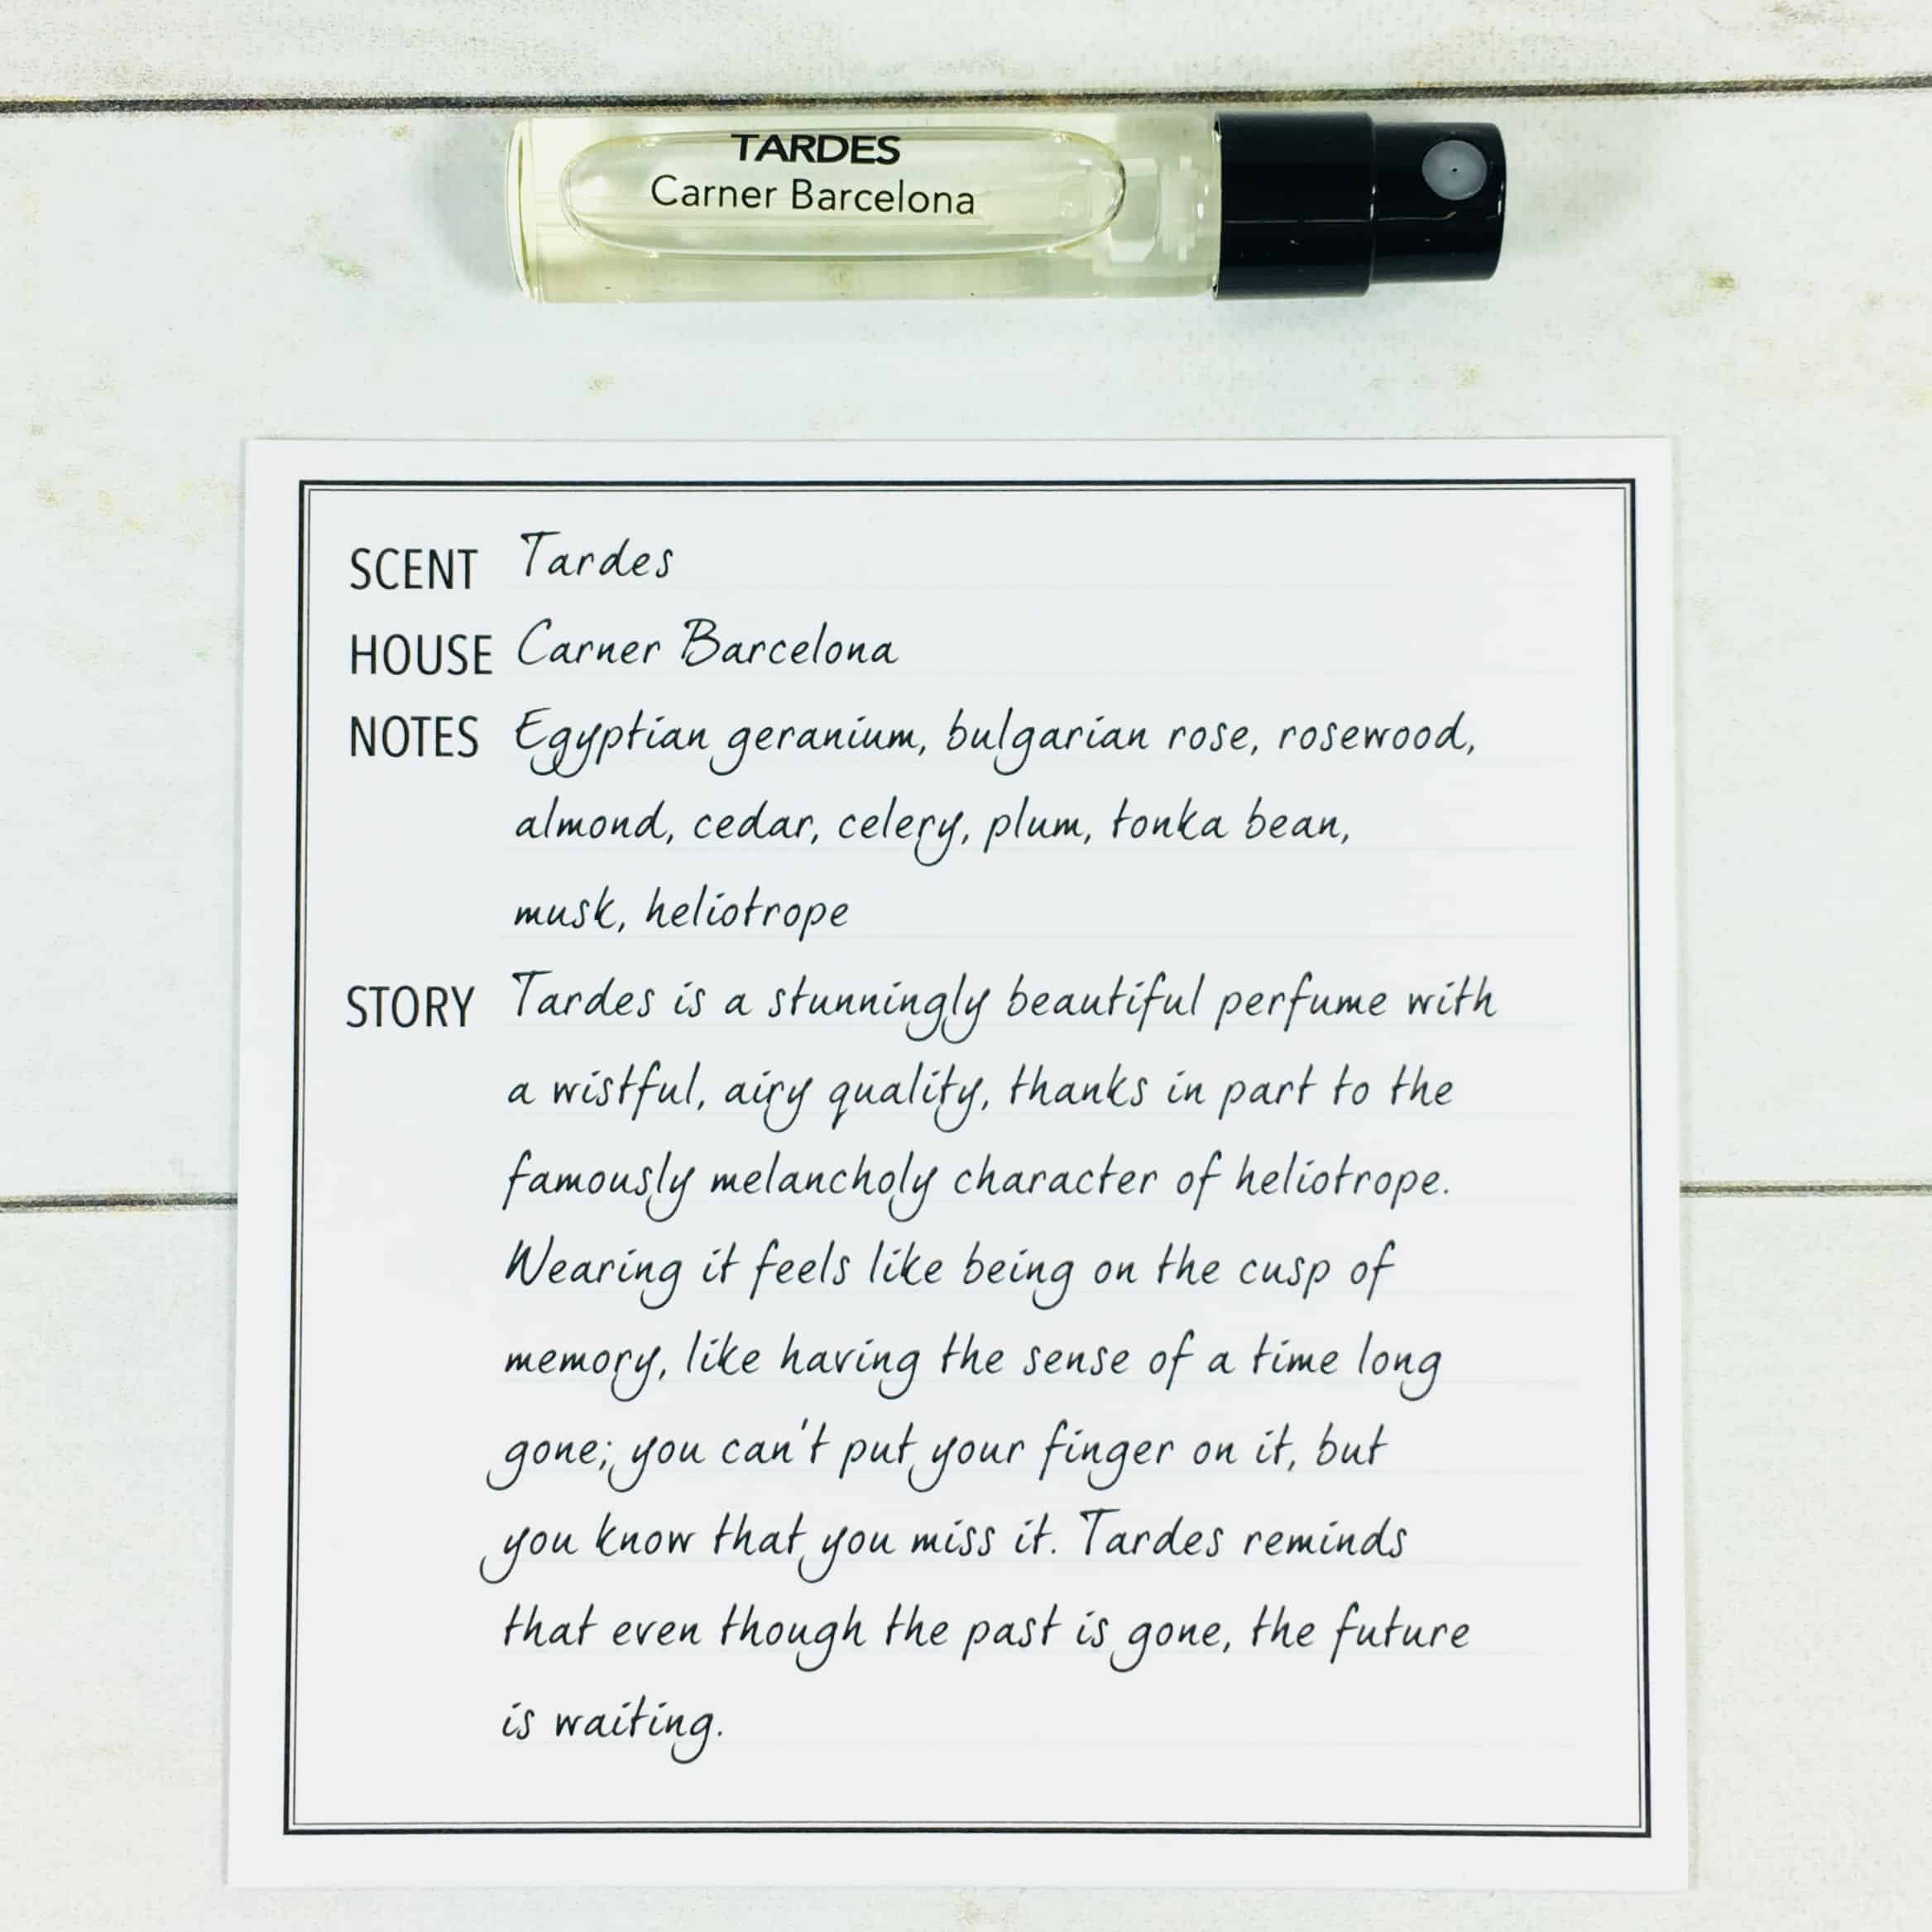 TARDES
Carner Barcelona
SCENT Tardes
HOUSE Carner Barcelona
NOTES Egyptian geranium, bulgarian rose, rosewood,
almond, cedar, celery, plum, tonka bean,
musk, heliotrope
STORY Tardes is a stunningly beautiful perfume with
a wistful, airy quality, thanks in part to the
famously melancholy character of heliotrope.
Wearing it feels like being on the cusp of
memory, like having the sense of a time long
gone; you can't put your finger on it, but
you know that you miss it. Tardes reminds
that even though the past is gone, the future
is waiting.